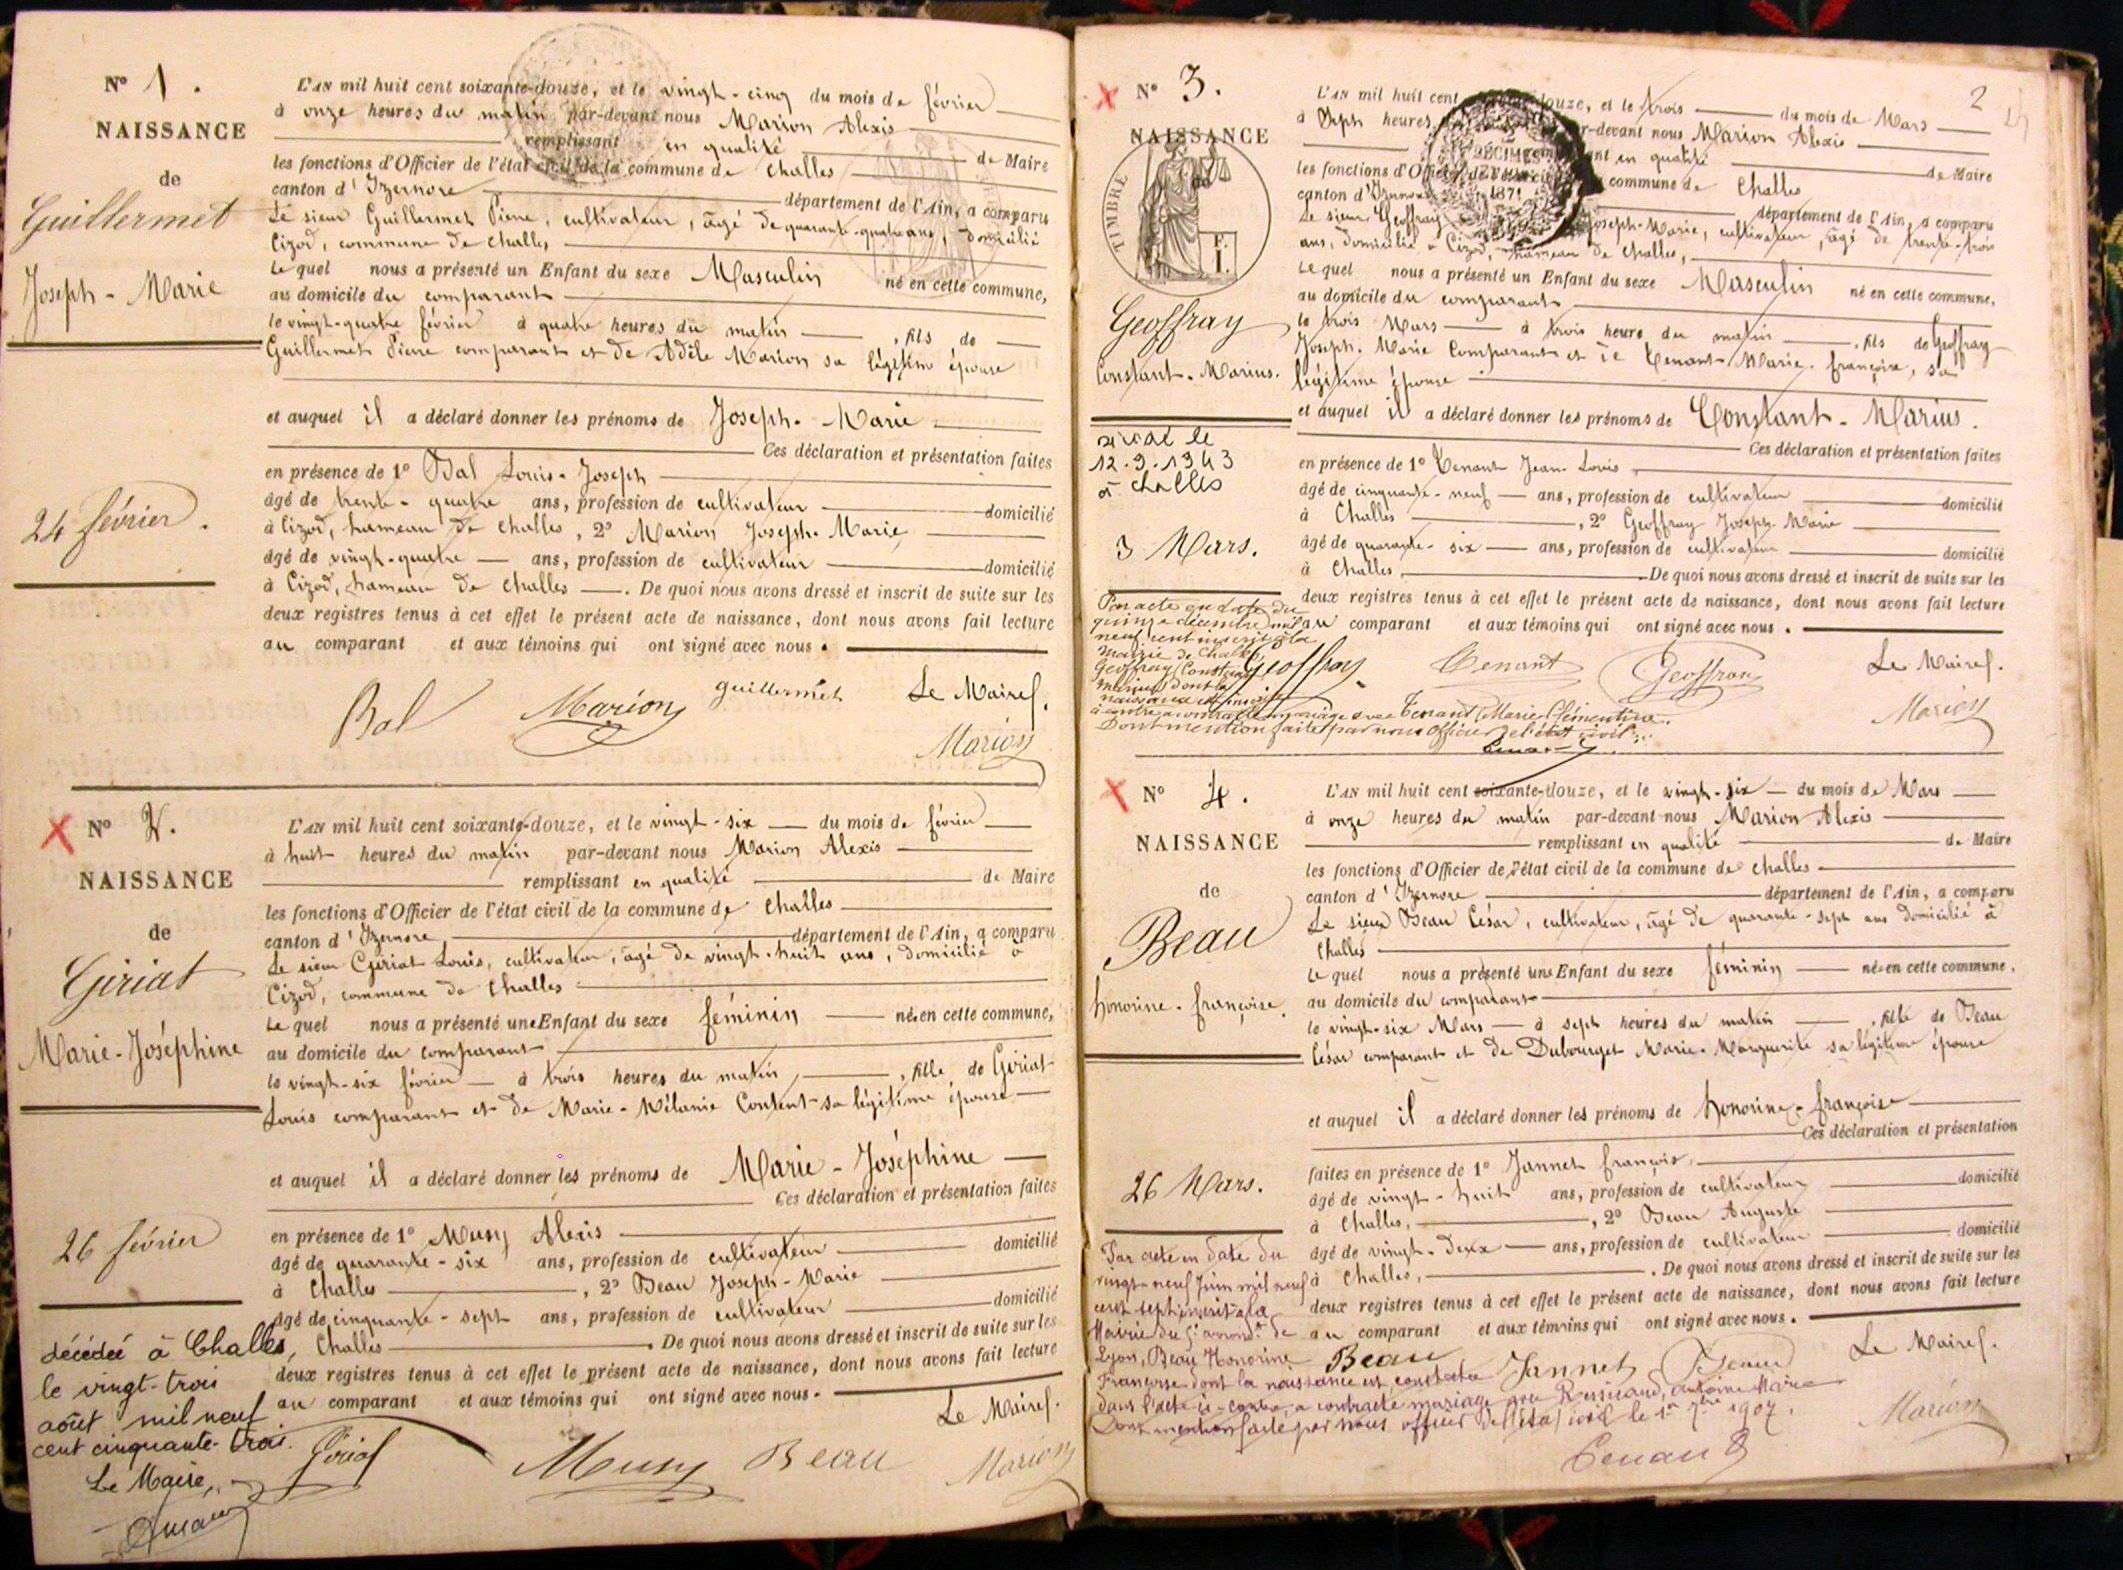 N° 1.
NAISSANCE
de
Guillermet
Joseph-Marie
24 février.
L'AN mil huit cent soixante-douze, et le vingt-cinq du mois de février
à onze heures du matin par-devant nous Marion Alexis
remplissant en qualité de Maire
les fonctions d'Officier de l'état civil de la commune de Challes
canton d'Izernore département de l'Ain, a comparu
Le sieur Guillermet Pierre, cultivateur, âgé de quarante-quatre ans, domicilié
Cizod, commune de Challes
Le quel nous a présenté un Enfant du sexe Masculin né en cette commune,
au domicile du comparant
le vingt-quatre février à quatre heures du matin, fils de
Guillermet Pierre comparant et de Adèle Marion sa légitime épouse
et auquel il a déclaré donner les prénoms de Joseph-Marie
Ces déclaration et présentation faites
en présence de 1° Bal Louis-Joseph
âgé de trente-quatre ans, profession de cultivateur domicilié
à Cizod, hameau de Challes, 2° Marion Joseph-Marie,
âgé de vingt-quatre ans, profession de cultivateur domicilié
à Cizod, hameau de Challes. De quoi nous avons dressé et inscrit de suite sur les
deux registres tenus à cet effet le présent acte de naissance, dont nous avons fait lecture
au comparant et aux témoins qui ont signé avec nous.
Bal Marion guillermet Le Maire.
Marion
N° 2.
NAISSANCE
de
Giriat
Marie-Joséphine
26 février
décédée à Challes,
le vingt-trois
août mil neuf
cent cinquante-trois.
Le Maire,
L'AN mil huit cent soixante-douze, et le vingt-six du mois de février
à huit heures du matin par-devant nous Marion Alexis
remplissant en qualité de Maire
les fonctions d'Officier de l'état civil de la commune de Challes
canton d'Izernore département de l'Ain, a comparu
Le sieur Giriat Louis, cultivateur, âgé de vingt-huit ans, domicilié à
Cizod, commune de Challes
Le quel nous a présenté une Enfant du sexe féminin née en cette commune,
au domicile du comparant
le vingt-six février à trois heures du matin, fille de Giriat
Louis comparant et de Marie-Mélanie Content sa légitime épouse
et auquel il a déclaré donner les prénoms de Marie-Joséphine
Ces déclaration et présentation faites
en présence de 1° Musy Alexis
âgé de quarante-six ans, profession de cultivateur domicilié
à Challes, 2° Beau Joseph-Marie
âgé de cinquante-sept ans, profession de cultivateur domicilié
Challes. De quoi nous avons dressé et inscrit de suite sur les
deux registres tenus à cet effet le présent acte de naissance, dont nous avons fait lecture
au comparant et aux témoins qui ont signé avec nous.
Le Maire.
Giriat Musy Beau Marion
2
N° 3.
NAISSANCE
TIMBRE
Geoffray
Constant-Marius.
le
12.9.1943
à Challes
3 Mars.
L'AN mil huit cent douze, et le trois du mois de Mars
à Sept heures par-devant nous Marion Alexis
en qualité de Maire
les fonctions d'Officier commune de Challes
DÉCIMES
1871
canton d'Izernore département de l'Ain, a comparu
Le sieur Geoffray Joseph-Marie, cultivateur, âgé de trente-trois
ans, domicilié à Cizod, hameau de Challes,
Le quel nous a présenté un Enfant du sexe Masculin né en cette commune,
au domicile du comparant
le trois Mars à trois heures du matin, fils de Geoffray
Joseph-Marie Comparant et de Tenant Marie-françoise, sa
légitime épouse
et auquel il a déclaré donner les prénoms de Constant-Marius.
Ces déclaration et présentation faites
en présence de 1° Tenant Jean-Louis
âgé de cinquante-neuf ans, profession de cultivateur domicilié
à Challes, 2° Geoffray Joseph Marie
âgé de quarante-six ans, profession de cultivateur domicilié
à Challes. De quoi nous avons dressé et inscrit de suite sur les
deux registres tenus à cet effet le présent acte de naissance, dont nous avons fait lecture
au comparant et aux témoins qui ont signé avec nous.
Par acte en date du
quinze décembre mil
neuf cent inscrit à la
mairie de Challes,
Geoffray Constant
Marius dont la
naissance est inscrite
a contracté mariage avec Tenant Marie Clémentine.
Dont mention faite par nous Officier de l'état civil.
Geoffray Tenant Geoffray Le Maire.
Marion
N° 4.
NAISSANCE
de
Beau
honorine-françoise.
26 Mars.
L'AN mil huit cent soixante-douze, et le vingt-six du mois de Mars
à onze heures du matin par-devant nous Marion Alexis
remplissant en qualité de Maire
les fonctions d'Officier de l'état civil de la commune de Challes
canton d'Izernore département de l'Ain, a comparu
Le sieur Beau César, cultivateur, âgé de quarante-sept ans domicilié à
Challes
Le quel nous a présenté une Enfant du sexe féminin née en cette commune,
au domicile du comparant
le vingt-six Mars à sept heures du matin, fille de Beau
César comparant et de Dubourget Marie-Marguerite sa légitime épouse
et auquel il a déclaré donner les prénoms de honorine-françoise
Ces déclaration et présentation
faites en présence de 1° Jannet françois,
âgé de vingt-huit ans, profession de cultivateur domicilié
à Challes, 2° Beau Auguste
âgé de vingt-deux ans, profession de cultivateur domicilié
à Challes. De quoi nous avons dressé et inscrit de suite sur les
deux registres tenus à cet effet le présent acte de naissance, dont nous avons fait lecture
au comparant et aux témoins qui ont signé avec nous.
Par acte en date du
vingt-neuf Juin mil neuf
cent sept inscrit à la
Mairie du arrondt de
Lyon, Beau Honorine
Françoise dont la naissance est constatée
dans l'acte ci-contre, a contracté mariage avec antoine Marie
Dont mention faite par nous officier de l'état civil le 1er 7bre 1907.
Beau Jannet Beau Le Maire.
Marion